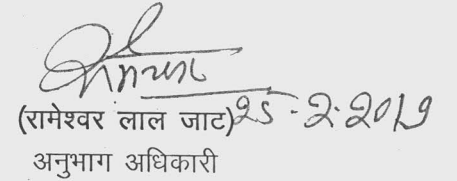 (रामेश्वर लाल जाट) 25-2-2019
अनुभाग अधिकारी